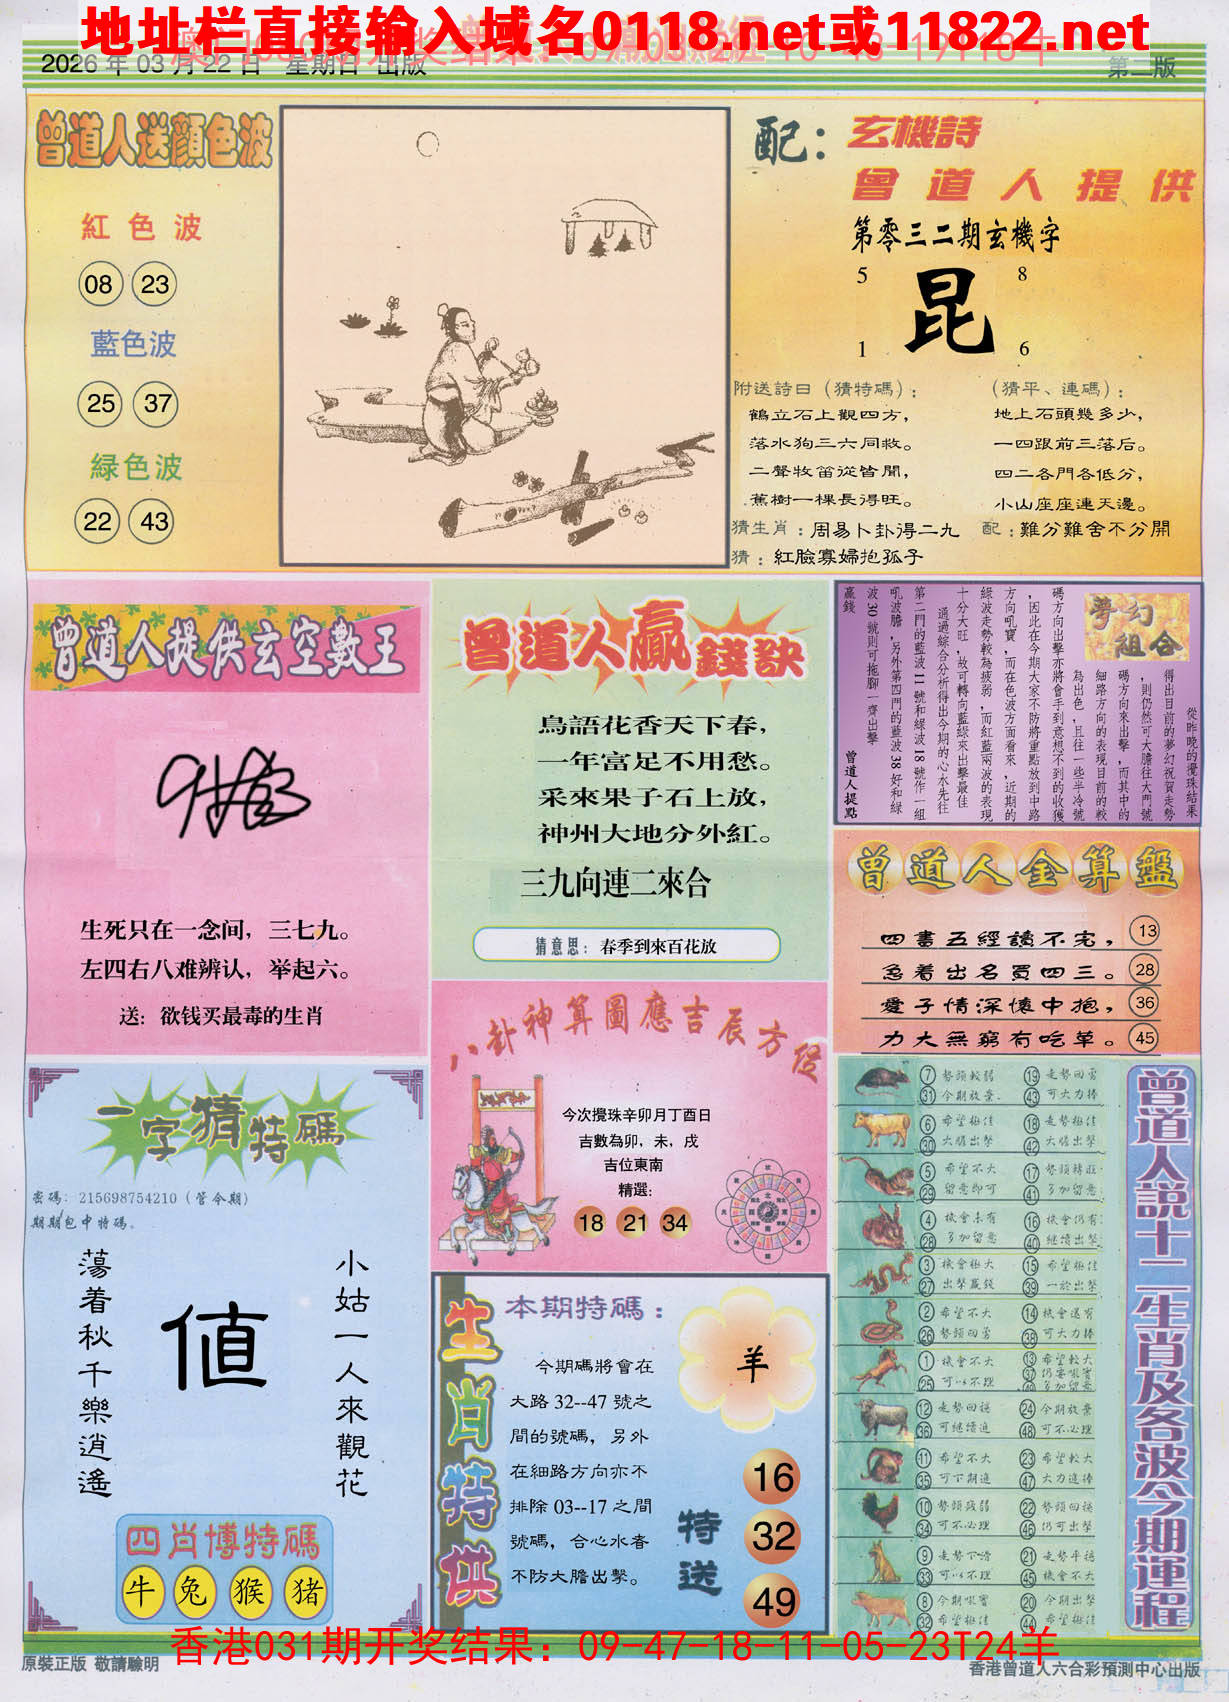 地址栏直接输入域名0118.net或11822.net
2026 年 03 月 22 日 星期日 出版
第二版
曾道人送顏色波
紅色波
08 23
藍色波
25 37
緑色波
22 43
配:
玄機詩
曾道人提供
第零三二期玄機字
5 8
昆
1 6
附送詩曰（猜特碼）:
鶴立石上觀四方，
落水狗三六同救。
二聲牧笛從皆聞，
蕉樹一棵長得旺。
（猜平、連碼）:
地上石頭幾多少，
一四跟前三落后。
四二各門各低分，
小山座座連天邊。
猜生肖：周易卜卦得二九
配：難分難舍不分開
猜：紅臉寡婦抱孤子
曾道人提供玄空數王
生死只在一念间，三七九。
左四右八难辨认，举起六。
送：欲钱买最毒的生肖
曾道人贏錢訣
鳥語花香天下春，
一年富足不用愁。
采來果子石上放，
神州大地分外紅。
三九向連二來合
猜意思：春季到來百花放
夢幻組合
從昨晚的攪珠結果
得出目前的夢幻祝賀走勢
，則仍然可大膽往大門號
碼方向來出擊，而其中的
細路方向的表現目前的較
為出色，且往一些半冷號
碼方向出擊亦將會手到意想不到的收獲
，因此在今期大家不防將重點放到中路
方向吼寶，而在色波方面看來，近期的
綠波走勢較為疲弱，而紅藍兩波的表現
十分大旺，故可轉向藍綠來出擊最佳
通過綜合分析得出今期的心水先往
第二門的藍波 11 號和綠波 18 號作一組
吼波膽，另外第四門的藍波 38 好和綠
波 30 號則可拖腳一齊出擊
贏錢
曾道人提點
曾道人金算盤
四書五經讀不完， 13
急着出名買四三。 28
愛子情深懷中抱， 36
力大無窮有吃草。 45
八卦神算圖應吉辰方位
今次攪珠辛卯月丁酉日
吉數為卯，未，戌
吉位東南
精選:
18 21 34
一字猜特碼
密碼: 215698754210（管令期）
期期包中特碼。
蕩着秋千樂逍遙
值
小姑一人來觀花
四肖博特碼
牛 兔 猴 猪
生肖特供
本期特碼：
今期碼將會在
大路 32--47 號之
間的號碼，另外
在細路方向亦不
排除 03--17 之間
號碼，合心水者
不防大膽出擊。
羊
特送
16
32
49
曾道人説十二生肖及各波今期運程
7 31 勢頭較弱 今期放棄 19 43 走勢回勇 可大力捧
6 30 希望極佳 大膽出擊 18 42 走勢極佳 大膽出擊
5 29 希望不大 留意即可 17 41 勢頭轉旺 多加留意
4 28 機會未有 多加留意 16 40 機會仍有 繼續出擊
3 27 機會極大 出擊贏錢 15 39 希望極佳 一於出擊
2 26 希望不大 勢頭回勇 14 38 機會還有 可大力捧
1 25 機會不大 可以不理 13 37 49 希望較大 仍要吼實 多加留意
12 36 走勢回穩 可繼續追 24 48 今期放棄 可不必理
11 35 希望不大 可下期追 23 47 希望較大 大力追捧
10 34 勢頭疲弱 可不必理 22 46 勢頭回穩 仍可出擊
9 33 走勢下滑 可以不理 21 45 走勢平穩 機會不大
8 32 今期吼實 希望極佳 20 44 今期出擊 希望極佳
香港031期开奖结果：09-47-18-11-05-23T24羊
原裝正版 敬請驗明
香港曾道人六合彩預測中心出版